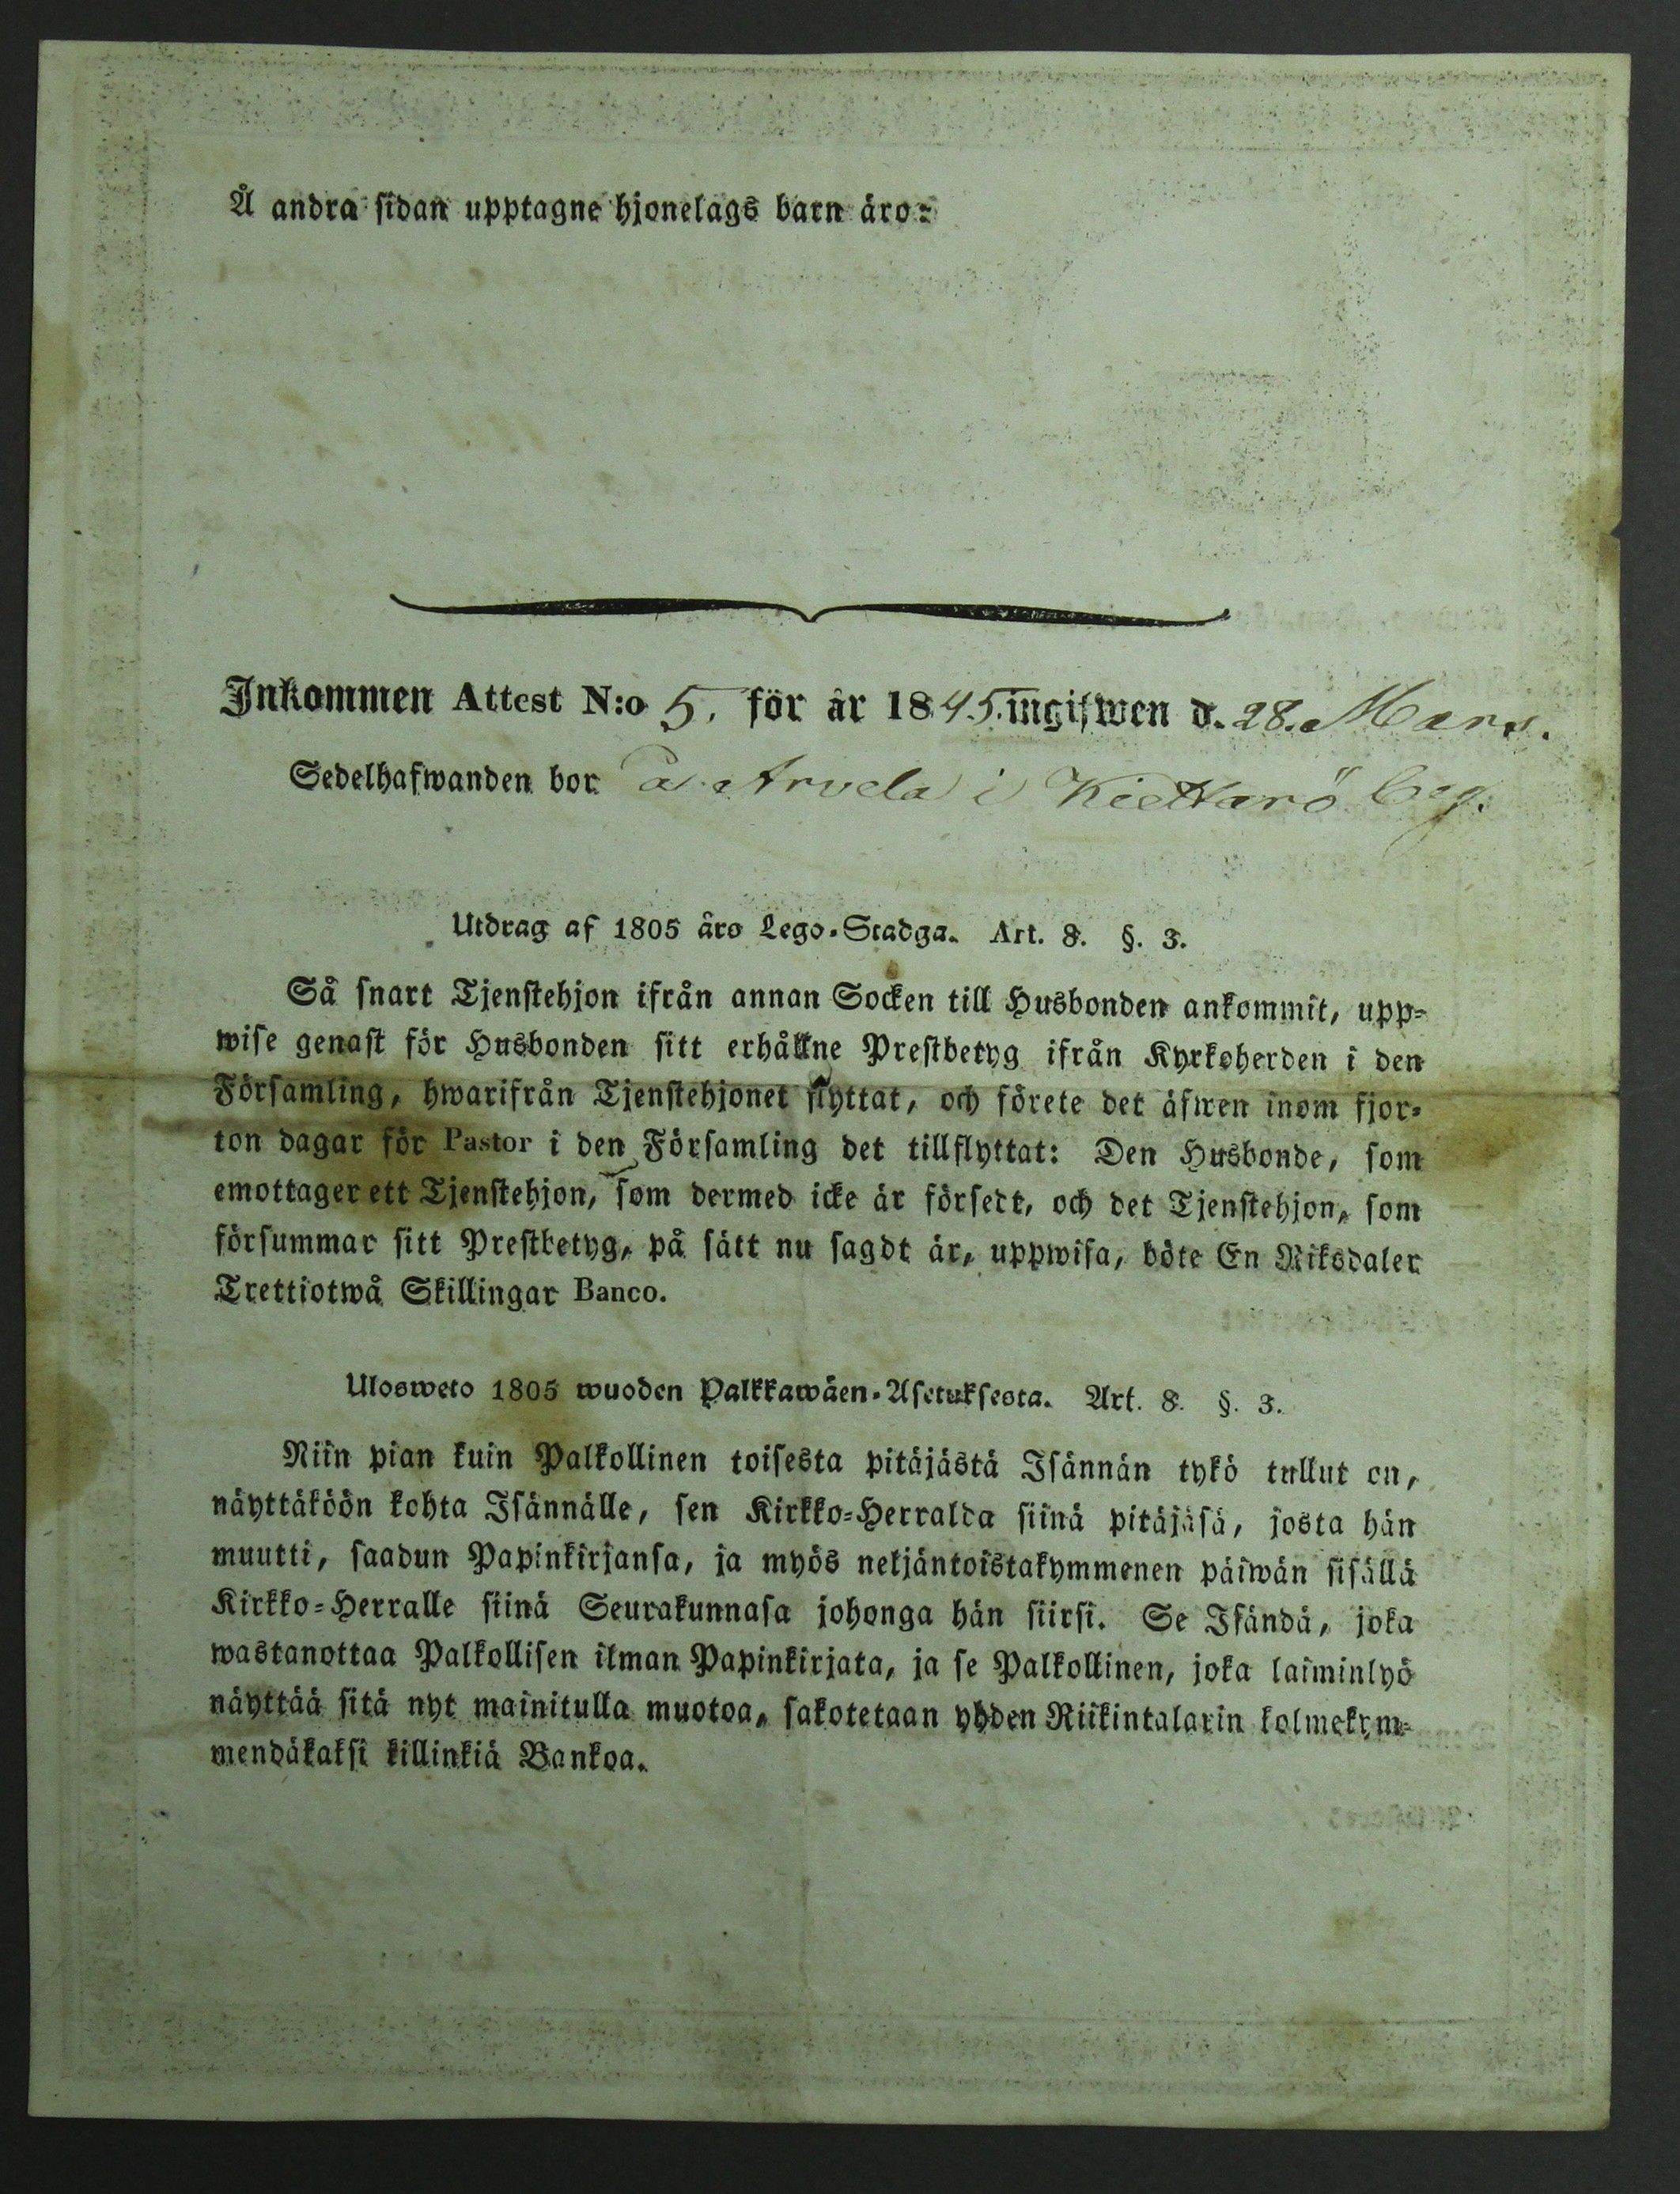 Å andra sidan upptagne hjonelags barn äro:
Inkommen Attest N:o 5. för år 1845. ingifwen d. 28. Mars.
Sedelhafwanden bor å Arvela i Kiettarö
Utdrag af 1805 års Lego-Stadga. Art. 8. §. 3.
Så snart Tjenstehjon ifrån annan Socken till Husbonden ankommit, upp-
wise genast för Husbonden sitt erhållne Prestbetyg ifrån Kyrkoherden i den
Församling, hwarifrån Tjenstehjonet flyttat, och förete det äfwen inom fjor-
ton dagar för Pastor i den Församling det tillflyttat: Den Husbonde, som
emottager ett Tjenstehjon, som dermed icke är försedt, och det Tjenstehjon, som
försummar sitt Prestbetyg, på sätt nu sagdt är, uppwisa, böte En Riksdaler
Trettiotwå Skillingar Banco.
Ulosweto 1805 wuoden Palkkawäen-Asetuksesta. Art. 8. §. 3.
Niin pian kuin Palkollinen toisesta pitäjästä Isännän tykö tullut on,
näyttäköön kohta Isännälle, sen Kirkko-Herralda siinä pitäjäsä, josta hän
muutti, saadun Papinkirjansa, ja myös neljäntoistakymmenen päiwän sisällä
Kirkko-Herralle siinä Seurakunnasa johonga hän siirsi. Se Isändä, joka
wastanottaa Palkollisen ilman Papinkirjata, ja se Palkollinen, joka laiminlyö
näyttää sitä nyt mainitulla muotoa, sakotetaan yhden Riikintalarin kolmekym-
mendäkaksi killinkiä Bankoa.